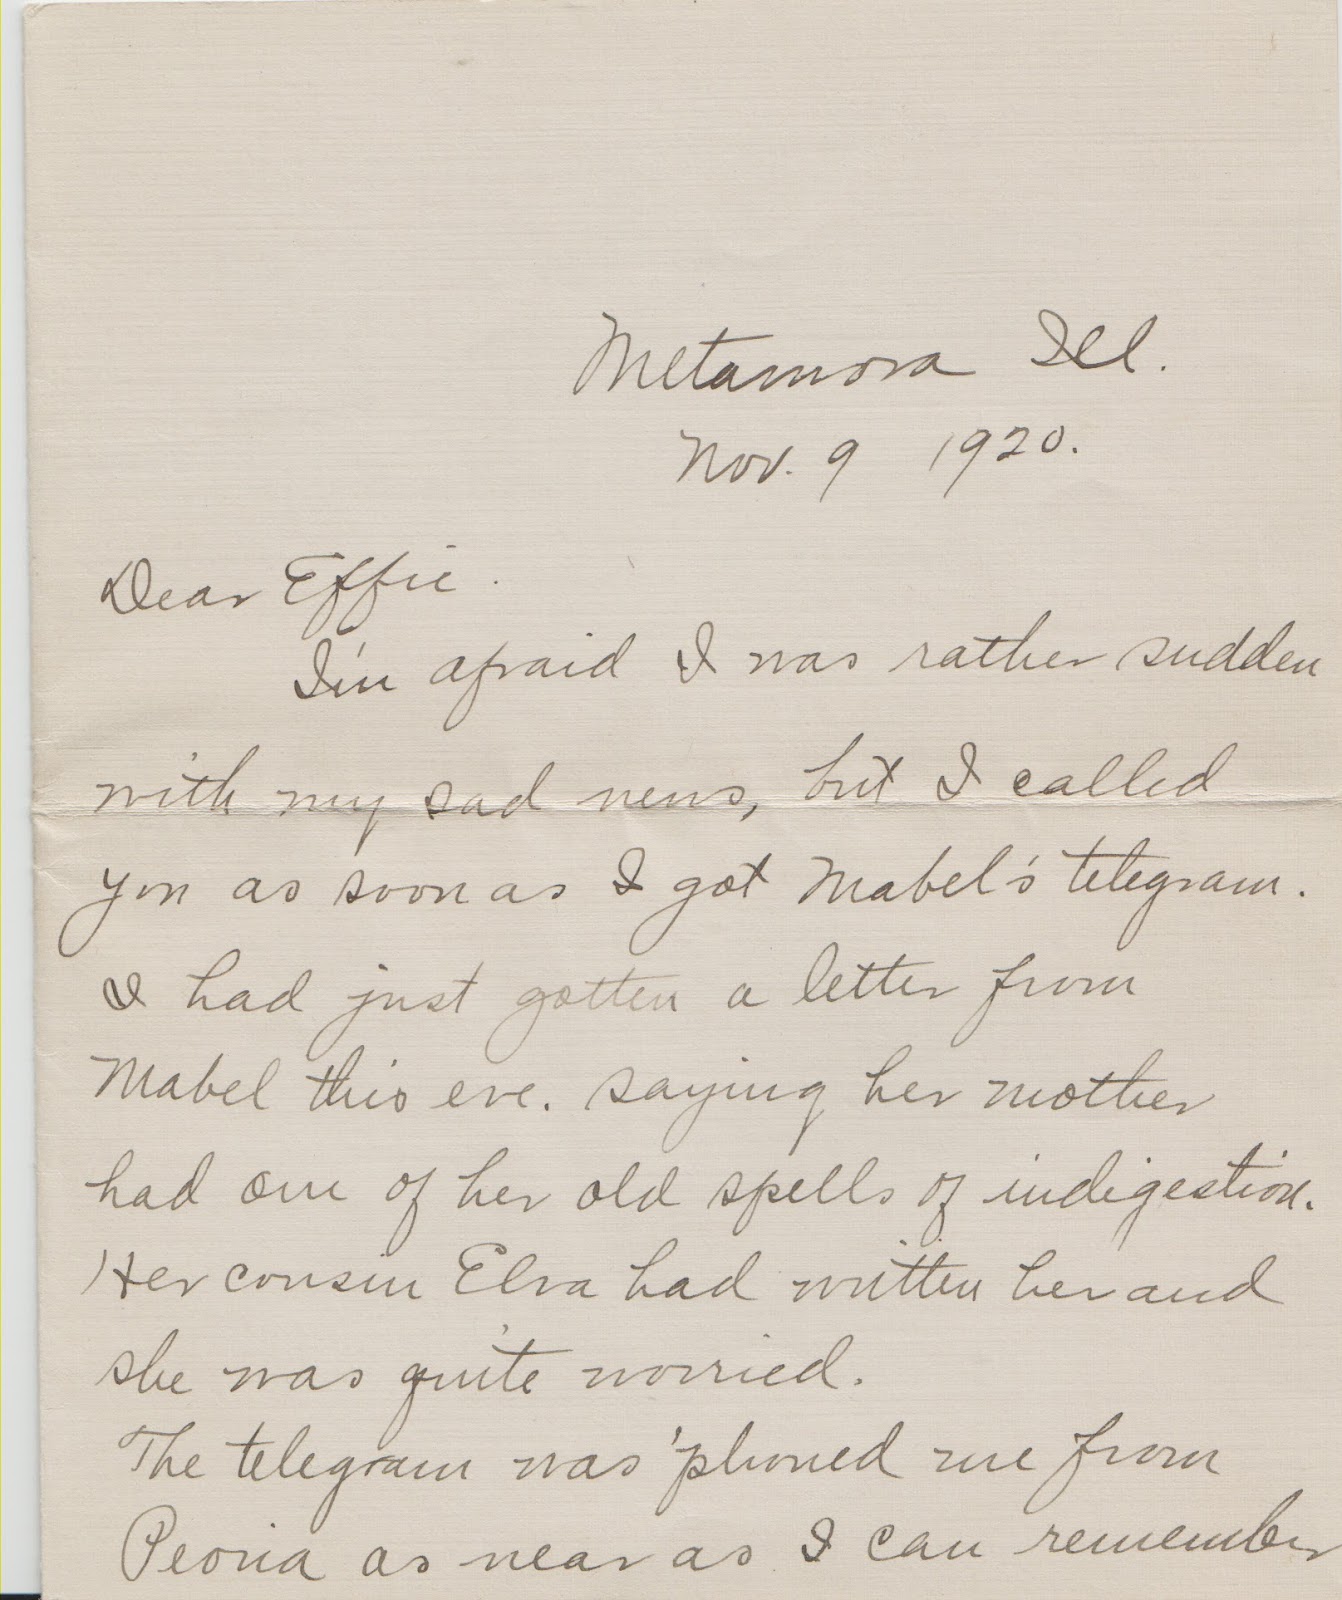 Metamora Ill.
Nov. 9 1920.
Dear Effie.
I'm afraid I was rather sudden
with my sad news, but I called
you as soon as I got Mabel's telegram.
I had just gotten a letter from
Mabel this eve. saying her mother
had one of her old spells of indigestion.
Her cousin Elva had written her and
she was quite worried.
The telegram was 'phoned me from
Peoria as near as I can remember